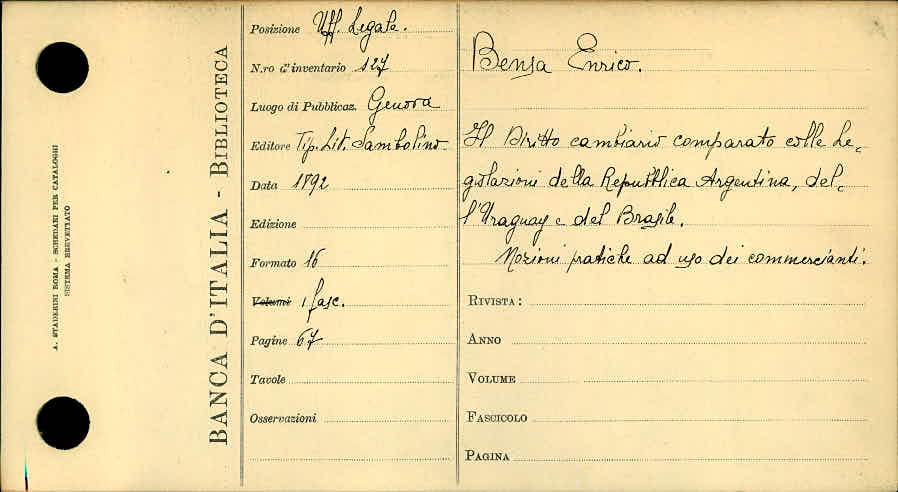 A. STADERINI ROMA - SCHEDARI PER CATALOGHI
SISTEMA BREVETTATO
BANCA D'ITALIA - BIBLIOTECA
Posizione Uff. Legale.
N.ro d'inventario 127
Luogo di Pubblicaz. Genova
Editore Tip. Lit. Sambolino
Data 1892
Edizione
Formato 16
Volumi 1 fasc.
Pagine 67
Tavole
Osservazioni
Bensa Enrico.
Il Diritto cambiario comparato colle Le-
gislazioni della Repubblica Argentina, del-
l'Uraguay e del Brasile.
Nozioni pratiche ad uso dei commercianti.
RIVISTA:
ANNO
VOLUME
FASCICOLO
PAGINA